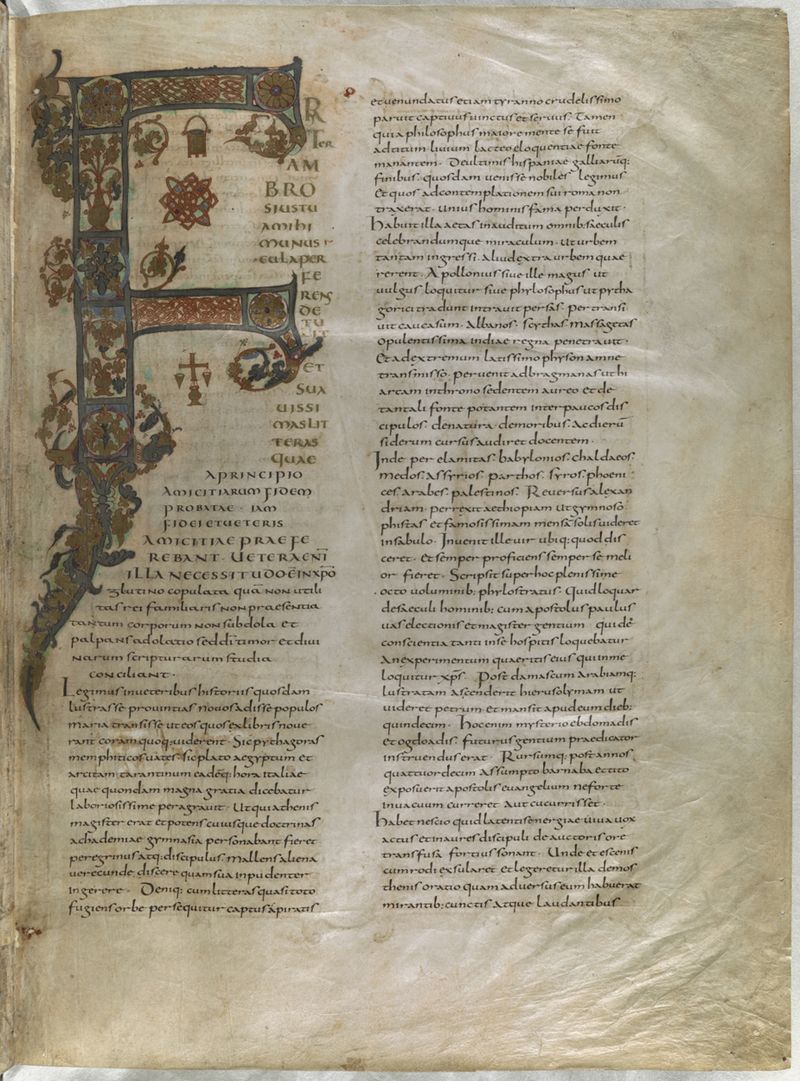 F
R
Ter
AM
BRO
SIUSTU
AMIHI
MUNUSI
CULAPER
FE
RENS
DE
TU
LIT
ET
SUA
UISSI
MASLIT
TERAS
QUAE
APRINCIPIO
AMICITIARUM FIDEM
PROBATAE · IAM
FIDEI ETUETERIS
AMICITIAE PRAEFE
REBANT · UETERAENĪ
ILLA NECESSITUDOĒINXPŌ
glutino copulata quā non utili
tas rei familiaris non praesentia
tantum corporum non subdola et
palpans adolatio sed dī timor et diui
narum scripturarum studia
conciliant ·
Legimus inueteribus historiis quosdam
lustrasse prouintias nouos adisse populos
maria transisse uteos quos exlibris noue
rant coram quoq; uiderent · Sic pythagoras
memphiticos uates · sic plato aegyptum et
arcitam tarantinum eadēq; hora italiae
quae quondam magna gratia dicebatur
laboriosissime peragrauit · Ut qui athenis
magister erat et potens cuiusque doctrinas
achademiae gymnasia personabant fieret
peregrinus atq; discipulus mallens aliena
uerecunde discere quam sua inpudenter
ingerere · Deniq; cum litteras quasi toto
fugiens orbe persequitur captus apiratis
et uenundatus etiam tyranno crudelissimo
paruit captiuus uinctus et seruus · Tamen
quia philosophus maiore mente se fuit
ad titum liuium lacteo eloquentiae fonte
manantem · De ultimis hispaniae galliarūq;
finibus · quosdam uenisse nobiles legimus
Et quos adcontemplationem sui roma non
traxerat · Unius hominis fama perduxit ·
Habuit illa aetas inauditum omnib; saeculis
celebrandumque miraculum · Ut urbem
tantam ingressi · aliud extra urbem quae
rerent · Apollonius siue ille magus ut
uulgus loquitur siue phylosophus ut pytha
gorici tradunt intrauit persas · pertransi
uit caucasum · Albanos · scythas massagetas
opulentissima indiae regna penetrauit ·
Et ad extremum latissimo physon amne
transmisso · peruenit ad bragmanas ut hi
arcam inthrono sedentem aureo et de
tantali fonte potantem inter paucos dis
cipulos · denatura · demoribus · ac dierū
siderum cursus audiret docentem ·
Inde per elamitas babylonios · chaldaeos
medos · assyrios · parthos · syros · phoeni
ces · arabes · palestinos · Reuersus alexan
driam · perrexit aethiopiam ut gymnoso
phistas et famosissimam mensā solis uideret
insabulo · Inuenit ille uir ubiq; quod dis
ceret · Et semper proficiens semper se meli
or fieret · Scripsit super hoc plenissime
octo uoluminib; phylostratus · Quid loquar
de saeculi hominib; cum apostolus paulus
uas electionis et magister gentium · qui dē
conscientia tanti inse hospitis loquebatur
An experimentum quaeritis eius qui inme
loquitur xps̄ · Post damascum arabiamq;
lustratam ascenderit hierusolymam ut
uideret petrum et mansit apud eum dieb;
quindecim · Hoc enim mysterio ebdomadis
et ogdoadis · futurus gentium praedicator
instruendus erat · Rursumq; post annos
quattuordecim assumpto barnaba et tito
exposuerit apostolis euangelium ne forte
inuacuum curreret aut cucurrisset ·
Habet nescio quid latentis energiae uiua uox
actus et inaures discipuli de auctoris ore
transfusa fortius sonant · Unde et escenis
cum rodi exsularet et legeretur illa demos
thenis oratio quam aduersus eum habuerat
mirantib; cunctis atque laudantibus